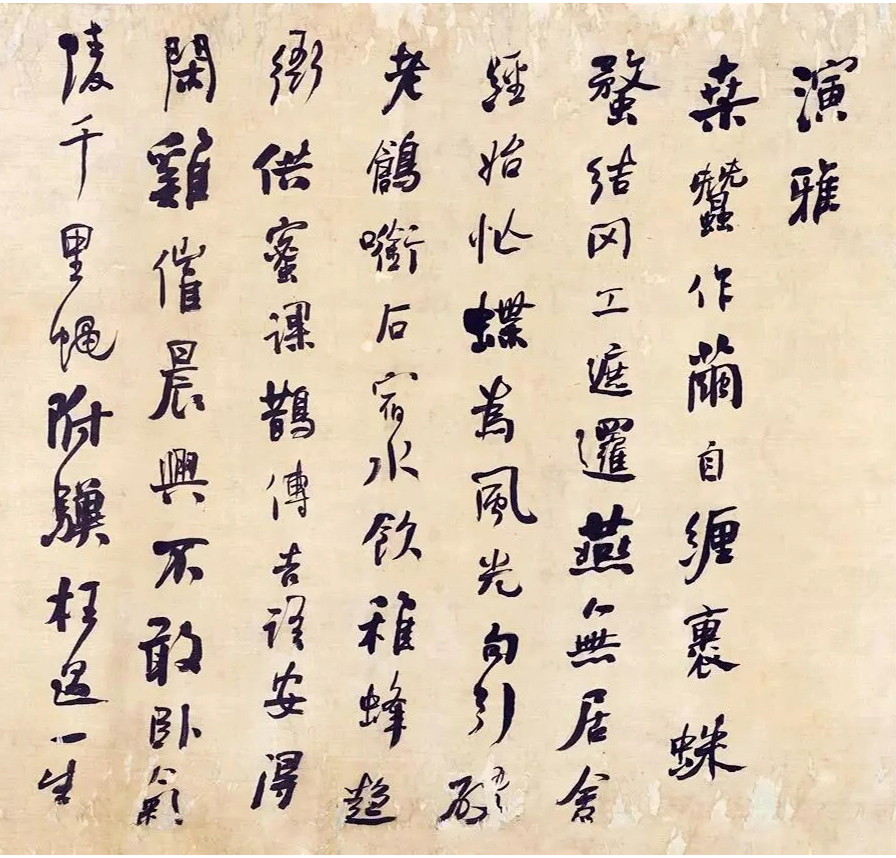 演雅
桒蠶作繭自纏裹蛛
蝥結网工遮邏燕無居舍
經始忙蝶為風光句引破
老鶬㘅石宿水飲稚蜂趨
衙供蜜課鵲傳吉語安得
閑雞催晨興不敢臥氣
陵千里蝇附驥枉過一生